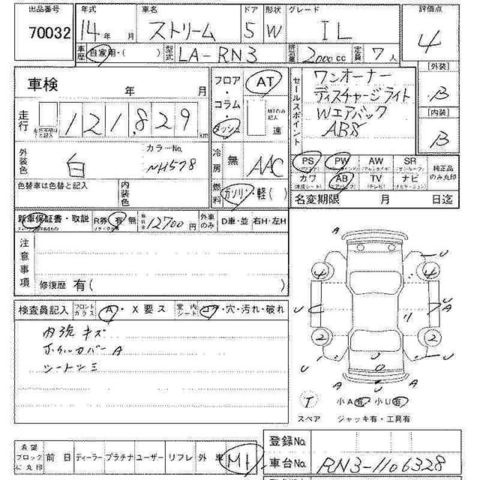 出品番号 70032
年式 14年 月
車名 ストリーム
ドア 5
形状 W
グレード iL
評価点 4
車歴 自家用・( )
型式 LA-RN3
排気量 2000cc
定員 7人
車検 年 月
走行 121,829 km
外装色 白
カラーNo. NH578
色替車は色替と記入
内装色
フロア・コラム・ダッシュ
AT
速
冷房 無 AAC
燃料 ガソリン・軽( )
セールスポイント
ワンオーナー
ディスチャージライト
Wエアバック
ABS
[外装] B
[内装] B
PS PW AW SR
カワ AB TV ナビ
純正品のみ点印
名変期限 月 日迄
新車保証書・取説
R券 有 無 12700円
外車のみ D車・並 右H・左H
注意事項
修復歴 有( )
検査員記入
フロントガラス A・X要ス
室内シート コゲ・穴・汚れ・破れ
内張キズ
ホイルカバーA
シートシミ
A U U A
4 4
U U
2 2
U J U
U
A A
T スペア
小A有 小U有
ジャッキ有・工具有
希望ブロックに丸印
前日 ディーラー プラチナ ユーザー リフレ 外車 MI
登録No.
車台No. RN3-1106328